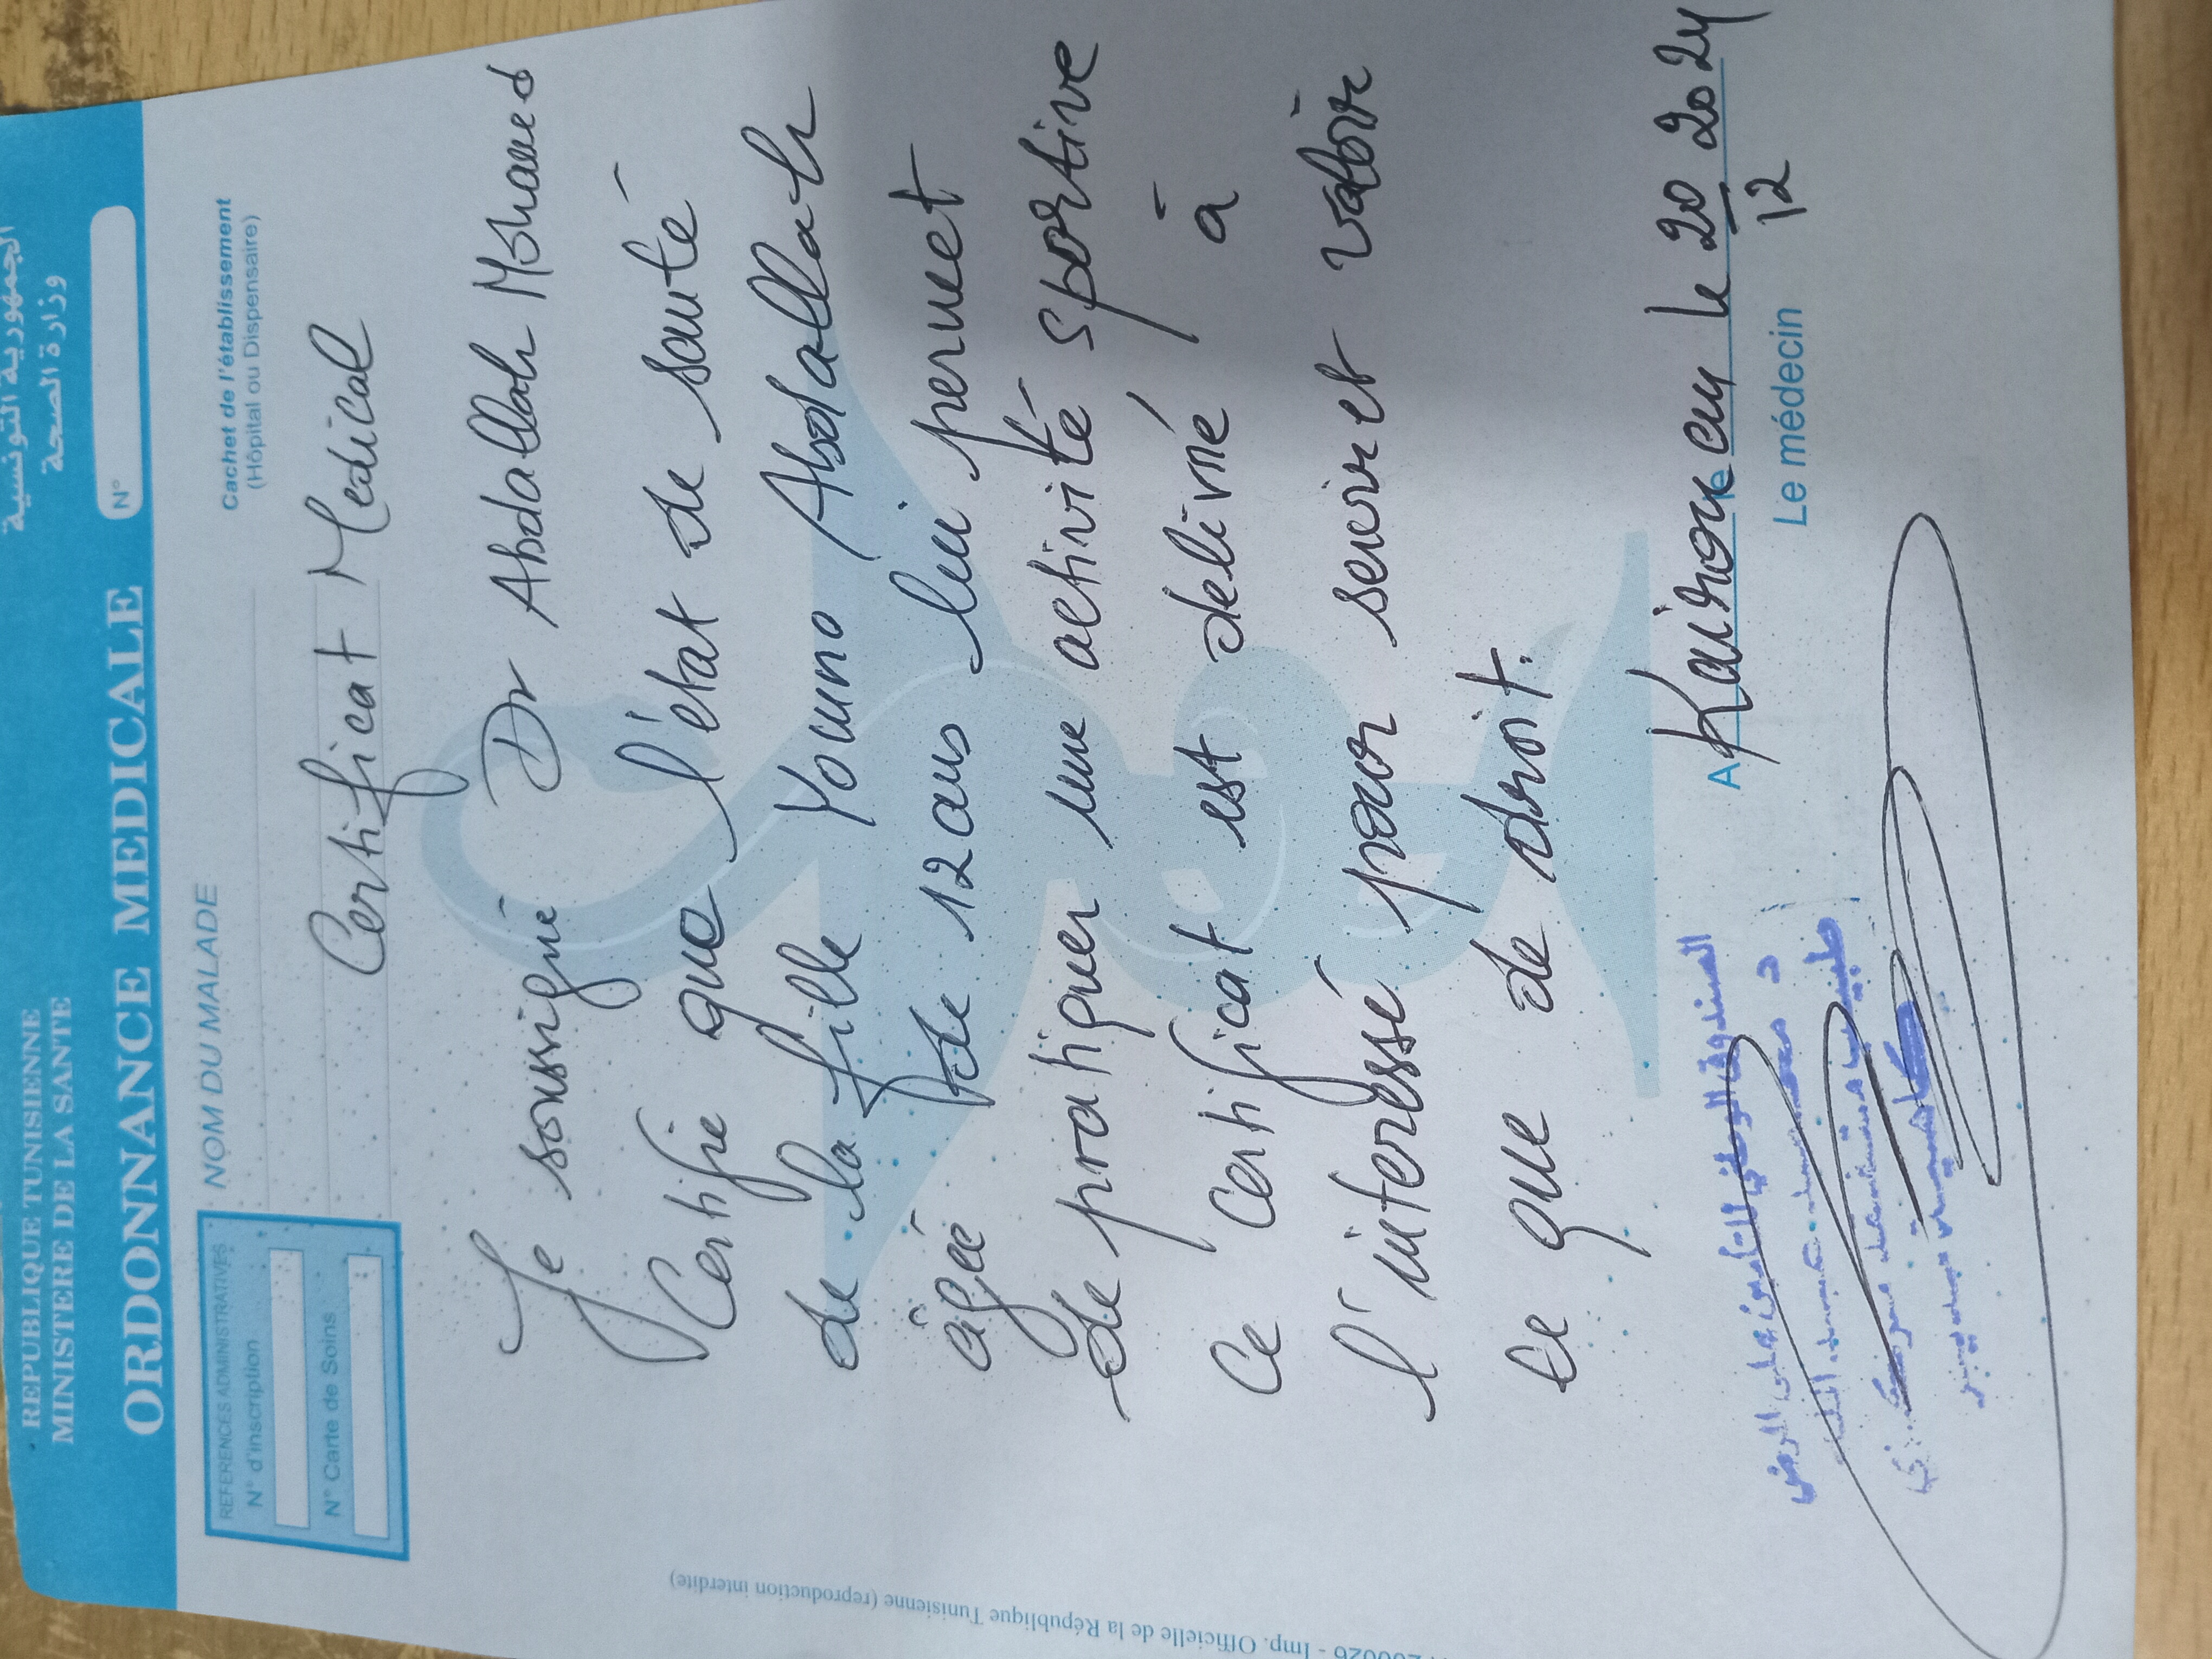 الجمهورية التونسية
وزارة الصحة
REPUBLIQUE TUNISIENNE
MINISTERE DE LA SANTE
ORDONNANCE MEDICALE
N°
REFERENCES ADMINISTRATIVES
N° d'inscription
N° Carte de Soins
NOM DU MALADE
Cachet de l'établissement
(Hôpital ou Dispensaire)
Certificat Medical
Je soussigné Dr Abdallah Mohamed
Certifie que l'état de santé
de la fille Youmno Abdallah
âgée de 12 ans lui permet
de pratiquer une activité sportive
Ce certificat est delivré à
l'interessé pour servir et valoir
ce que de droit.
A Kairouan le 20 2024
12
Le médecin
الصندوق الوطني للتأمين على المرض
د. محمد عبد الله
طبيب
- Imp. Officielle de la République Tunisienne (reproduction interdite)